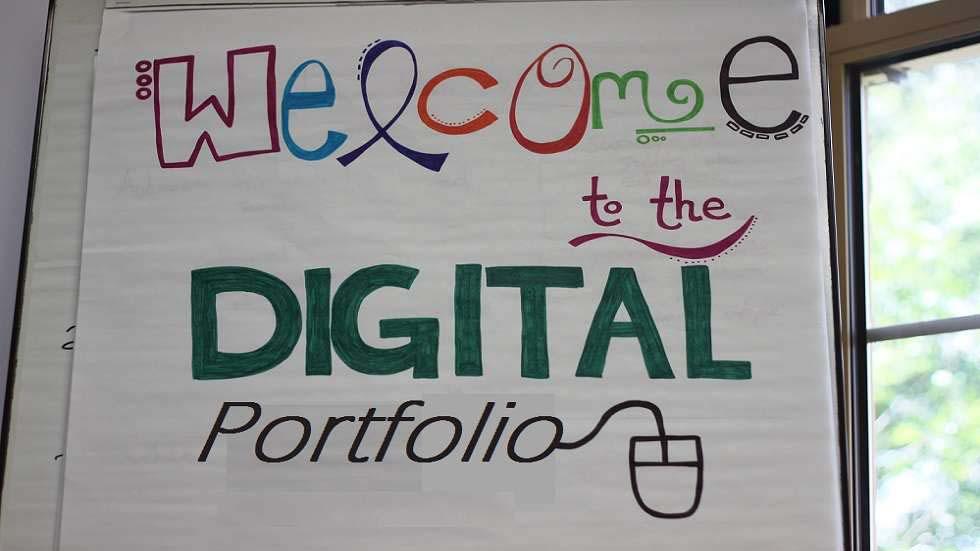 Welcome
to the
DIGITAL
Portfolio